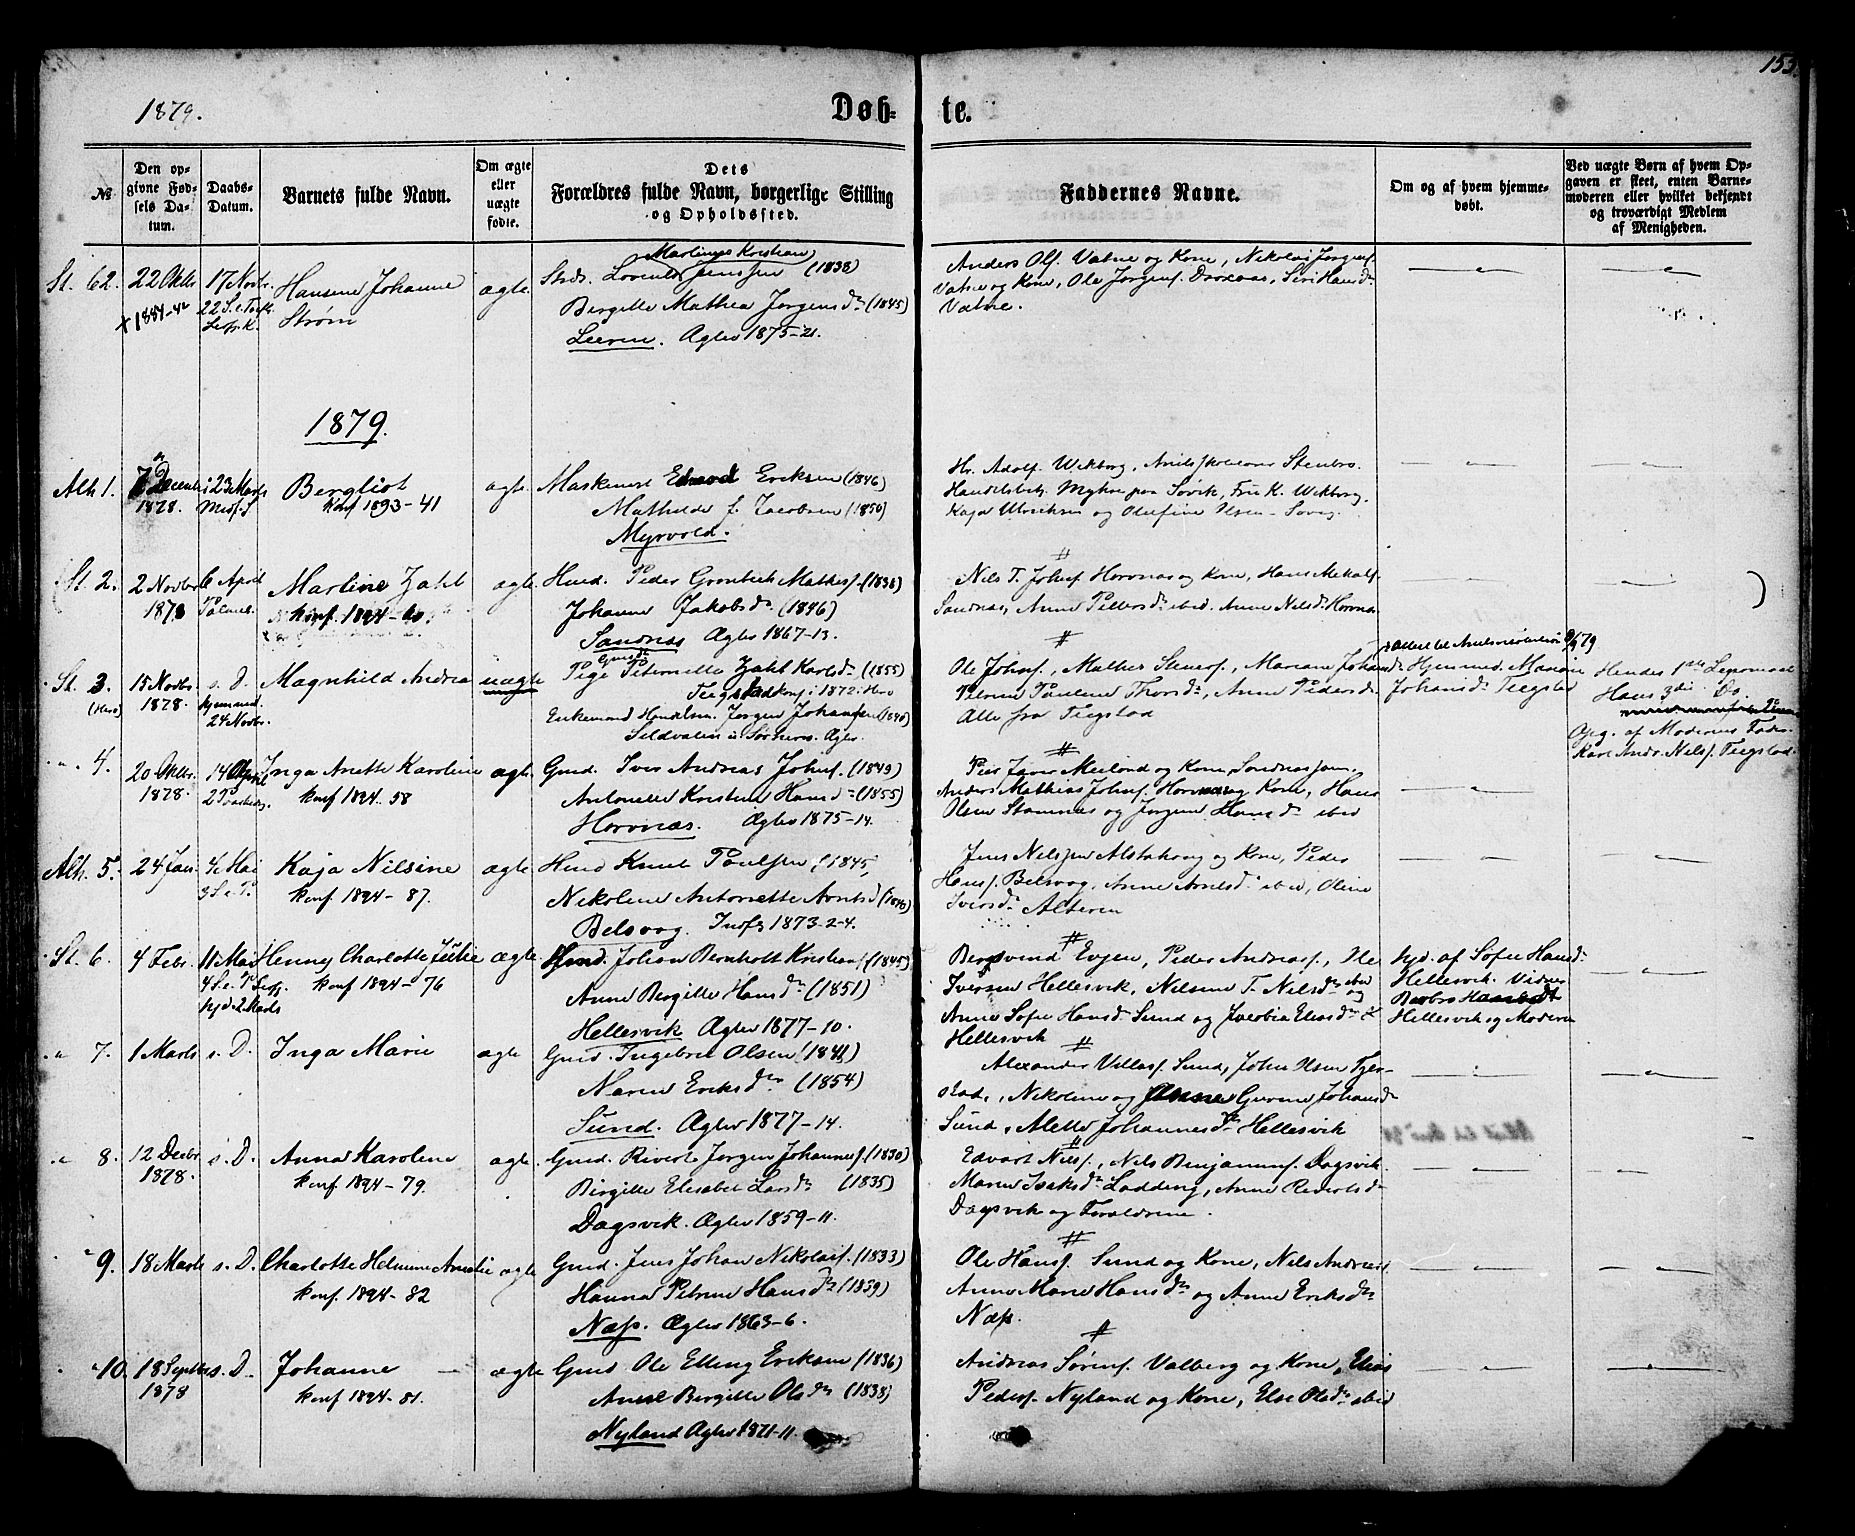 153.
1879.
Døb-
te.
№
Den op-
givne Fød-
sels Da-
tum.
Daabs-
Datum.
Barnets fulde Navn.
Om ægte
eller
uægte
fødte.
Dets
Forældres fulde Navn, borgerlige Stilling
og Opholdssted.
Faddernes Navne.
Om og af hvem hjemme-
døbt.
Ved uægte Børn af hvem Op-
gaven er skeet, enten Barne-
moderen eller hvilket bekjendt
og troværdigt Medlem
af Menigheden.
St. 62.
22 Oktbr
17 Novbr.
Hansine Johanne
Strøm
ægte
Martinus Kristian
Jenssen (1838)
Bergitte Mathea Jørgensdr (1845)
Leeren. Ægtev 1875-21.
Anders Ols. Vatne og Kone, Nikolai Jørgens.
Vatne og Kone, Ole Jørgens.
Vatne.
1879.
Alh 1.
7 Decembr
1878.
23 Marts
Bergliot
Konf 1893-41
ægte
Maskinist Edvard Eriksen (1846)
Mathilde f. Jacobsen (1850)
Myrvold.
Hr. Adolf Wikborg,
Handelsbetj. Myhre paa Søvik, Fru K. Wikborg,
Kaja Ulrichsen og Olufine Olsen - Søvig.
St. 2.
2 Novbr
1878
6 April
Palmes.
Martine Zahl
Konf. 1894-60.
ægte
Husd. Peder Grønbech Mathis. (1838)
Johanna Jakobsdr (1846)
Sandnæs Ægtev 1867-13.
Nils T. Johns. Horvnæs og Kone, Hans
Sandnæs, Anne Pettersdr ibid. Anne Nilsdr Horvnæs
St. 3.
(Herø)
15 Novbr.
1878.
s. D.
hjemmed.
24 Novbr.
Magnhild Andrea
uægte
Gaardt.
Pige Peternille Zahl Karlsdr (1855)
Tiegstad Konf. i 1872 i Herø
Enkemand Handelsm. Jørgen Johansen (1840)
Sildvalen i Sørherø.
Ole Johns., Mathis Steners., Marian Johansdr
Petrine Pauline Thorsdr, Anne Pedersdr
Alle fra Tiegstad
Hjemmed. Marian
Johansdr Tiegstad
Hendes 1ste Leiermaal
Hans 3die Do.
Opg. af Moderens Fader
Karl Andr. Nils. Tiegstad.
4.
20 Oktbr.
1878.
14 April
2 Paaskedag
Inga Anette Karoline
Konf 1894. 58
ægte.
Gmd. Iver Andreas Johns. (1849)
Antonette Kristine Hansdr (1855)
Horvnæs. Ægtev 1875-14.
Peer Meiland og Kone, Sandnæssjøen,
Anders Mathias Johns. Horvnæs og Kone, Hans
Olsen Stamnæs og Jørgen Hansdr ibid
Alh. 5.
24 Jan.
4 Mai
3 S. e. P.
Kaja Nilsine
Konf. 1894-87.
ægte
Husd Knut Poulsen (1845)
Nikoline Antonette Arntsd (1848)
Belsvog. Indf. 1873-2-4.
Jens Nilssen Alstahoug og Kone, Peder
Hans. Belsvog, Anne Arntsdr ibid, Oline
Iversdr Alteren
St. 6.
4 Febr.
11 Mai
4 S. e. P.
hjd. 2 Marts
Henny Charlotte Julie
Konf 1894-76
ægte
Gmd. Johan Bernholt Kristians. (1845)
Anne Bergitte Hansdr (1851)
Hellesvik Ægtev 1877-10.
Bergsvend Evjen, Peder Andreas., Ole
Iversen Hellesvik, Nilsine T. Nilsdr ibid og
Anne Sofie Hansdr Sund og Jacobia Eliasdr
Hellesvik
hjd. af Sofie Hansdr
Hellesvik. Vidner
Hellesvik og Moderen
7.
1 Marts
s. D.
Inga Marie
ægte
Gmd. Ingebret Olsen (1841)
Maren Eriksdr (1854)
Sund. Ægtev 1877-14.
Alexander Villas. Sund, John Olsen Tjer-
stad, Nikoline og Anne Gurine Johansdr
Sund, Mette Johannesdr Hellesvik
8.
12 Decbr
1878.
s. D.
Anna Karoline
Konf 1894-79.
ægte.
Gmd. Rivert Jørgen Johannes. (1830)
Birgitte Elisabet Larsdr (1835)
Dagsvik. Ægtev 1859-11.
Edvart Nils., Nils Benjamins. Dagsvik.
Maren Isaksdr Ladding, Anne Rivertsdr
Dagsvik og Forældrene.
9.
18 Marts
s. D.
Charlotte Helmine Amalie
Konf. 1894-82
ægte
Gmd. Jens Johan Nikolais. (1833)
Hanna Petrine Hansdr (1839)
Næss. Ægtev 1863-6.
Ole Hans. Sund og Kone, Nils Andreas.
Anne Marie Hansdr og Anne Eriksdr
Næss.
10.
18 Septbr
1878
s. D.
Johanne
Konf 1894-81.
ægte
Gmd Ole Elling Eriksen (1836)
Anne Bergitte Olsdr (1838)
Nyland Ægtev 1871-11.
Andreas Sørens. Valberg og Kone, Elias
Peders. Nyland og Kone, Else Olsdr ibid